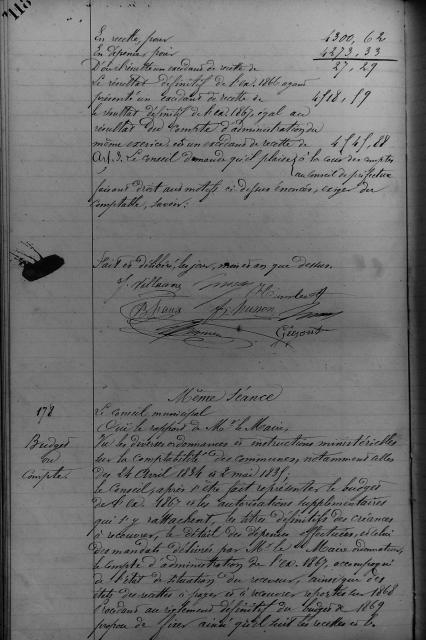 118
En recette, pour 4300,62
En dépense, pour 4273,33
D'où résulte un excédant de recette de 27,29
Le résultat définitif de l'ex. 1866 ayant
présenté un excédant de recette de 4518,59
le résultat définitif de l'ex. 1867, égal au
résultat du Compte d'administration du
même exercice est un excédant de recette de 4545,88
Art. 3. Le Conseil demande qu'il plaise à la cour des comptes
au conseil de préfecture
faisant droit aux motifs ci-dessus énoncés, exiger du
comptable, savoir:
Fait et délibéré, les jour, mois et an que dessus.
Même Séance
178
Budget
ou
Compte.
Le Conseil municipal
Oui le rapport de Mr. le Maire,
Vu les diverses ordonnances et instructions ministérielles
sur la comptabilité des communes, notamment celles
des 24 Avril 1834 et 2 mai 1835;
Le Conseil, après s'être fait représenter le budget
de l'ex. 1867 et les autorisations supplémentaires
qui s'y rattachent, les titres définitifs des créances
à recouvrer, le détail des dépenses effectuées, et celui
des mandats délivrés par Mr. le Maire ordonnateur,
le compte d'administration de l'ex. 1867, accompagné
de l'état de situation du receveur, ainsi que des
états des restes à payer et à recouvrer reportés sur 1868
Procédant au règlement définitif du budget de 1869
propose de fixer ainsi qu'il suit les recettes et les